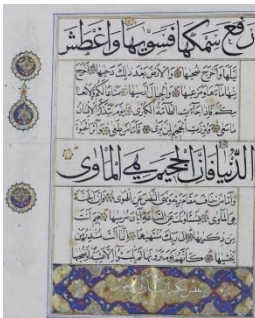 رفع سمكها فسويها واغطش
ليلها واخرج ضحيها والارض بعد ذلك دحيها اخرج
منها ماءها ومرعيها والجبال ارسيها متاعا لكم ولانعا
مكم فاذا جاءت الطامة الكبرى يوم يتذكر الانسان
ما سعى وبرزت الجحيم لمن يرى فاما من طغى واثر الحيوة
الدنيا فان الجحيم هي الماوى
واما من خاف مقام ربه ونهى النفس عن الهوى فان الجنة
هي الماوى يسئلونك عن الساعة ايان مرسيها فيم انت
من ذكريها الى ربك منتهيها انما انت منذر من
يخشيها كانهم يوم يرونها لم يلبثوا الا عشية او ضحيها